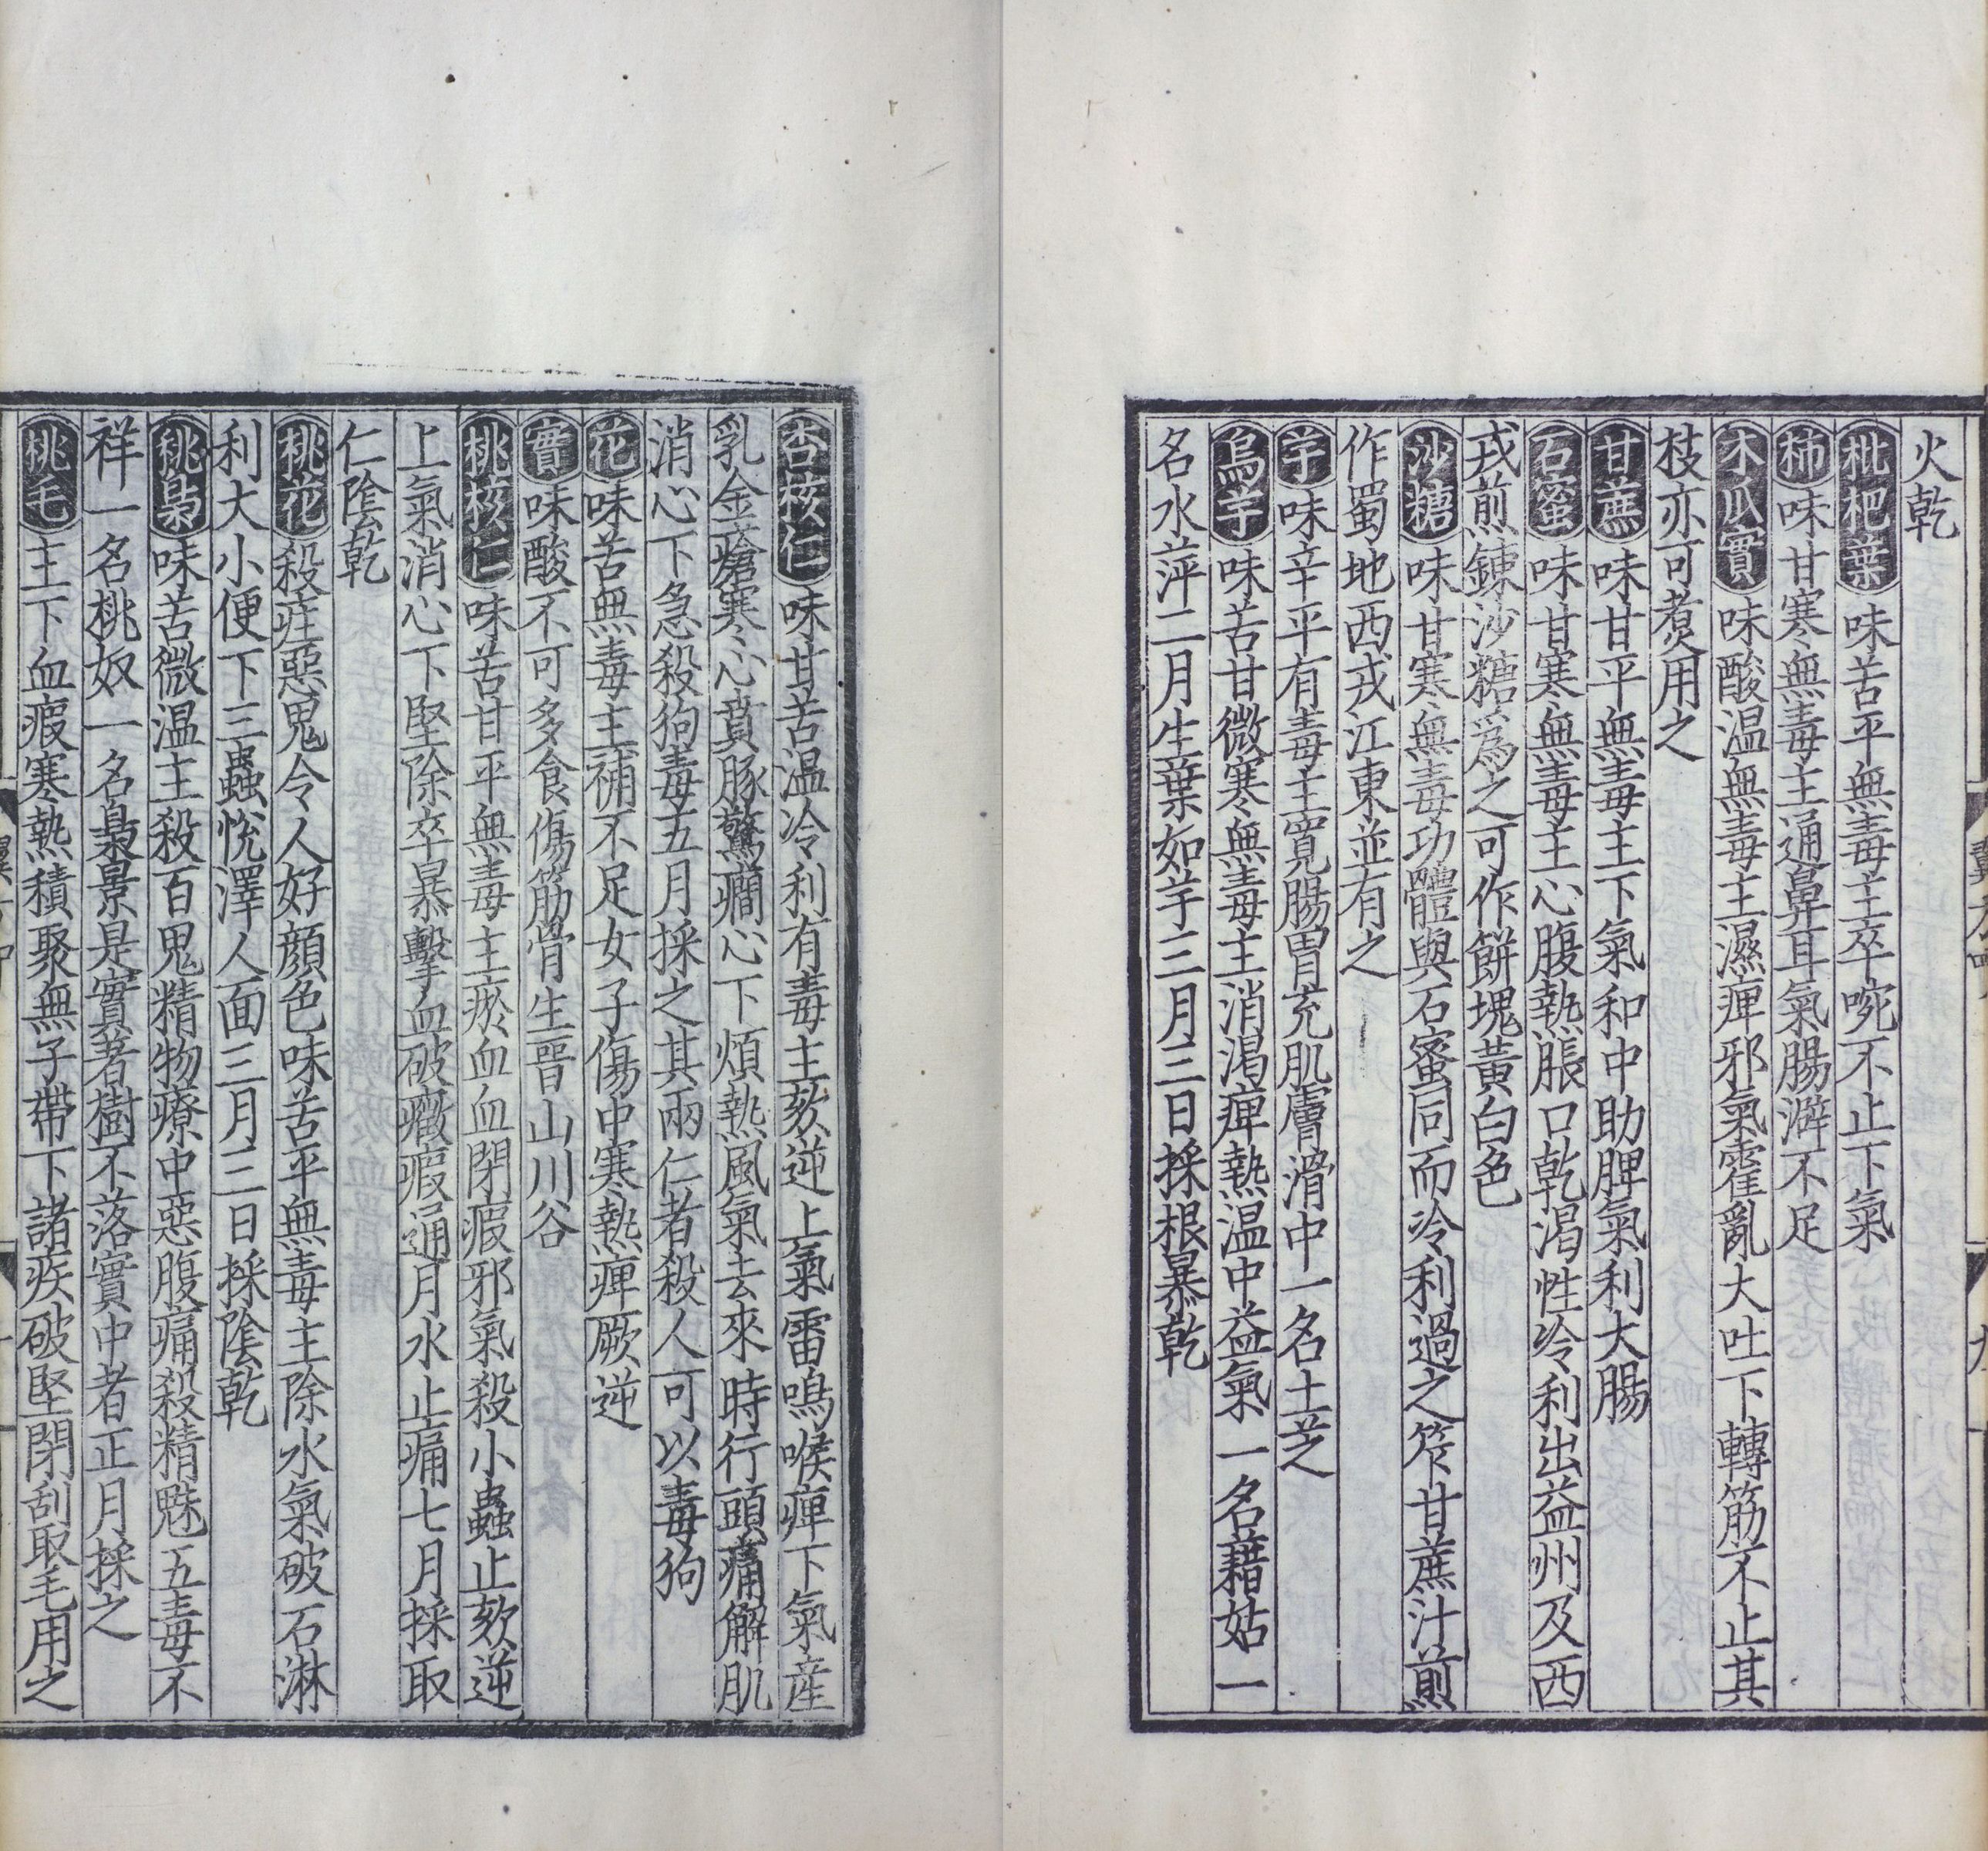 火乾
枇杷葉味苦平無毒主卒啘不止下氣
柿味甘寒無毒主通鼻耳氣腸澼不足
木瓜實味酸温無毒主濕痺邪氣霍亂大吐下轉筋不止其
枝亦可煮用之
甘蔗味甘平無毒主下氣和中助脾氣利大腸
石蜜味甘寒無毒主心腹熱脹口乾渴性冷利出益州及西
戎煎鍊沙糖爲之可作餅塊黃白色
沙糖味甘寒無毒功體與石蜜同而冷利過之笮甘蔗汁煎
作蜀地西戎江東並有之
芋味辛平有毒主寛腸胃充肌膚滑中一名土芝
烏芋味苦甘微寒無毒主消渴痺熱温中益氣一名藉姑一
名水萍二月生葉如芋三月三日採根暴乾
杏核仁味甘苦温冷利有毒主欬逆上氣雷鳴喉痺下氣産
乳金瘡寒心賁豚驚癎心下煩熱風氣去來時行頭痛解肌
消心下急殺狗毒五月採之其兩仁者殺人可以毒狗
花味苦無毒主補不足女子傷中寒熱痺厥逆
實味酸不可多食傷筋骨生晉山川谷
桃核仁味苦甘平無毒主瘀血血閉瘕邪氣殺小蟲止欬逆
上氣消心下堅除卒暴擊血破癥瘕通月水止痛七月採取
仁陰乾
桃花殺疰惡鬼令人好顔色味苦平無毒主除水氣破石淋
利大小便下三蟲悅澤人面三月三日採陰乾
桃梟味苦微温主殺百鬼精物療中惡腹痛殺精魅五毒不
祥一名桃奴一名梟景是實著樹不落實中者正月採之
桃毛主下血瘕寒熱積聚無子帶下諸疾破堅閉刮取毛用之